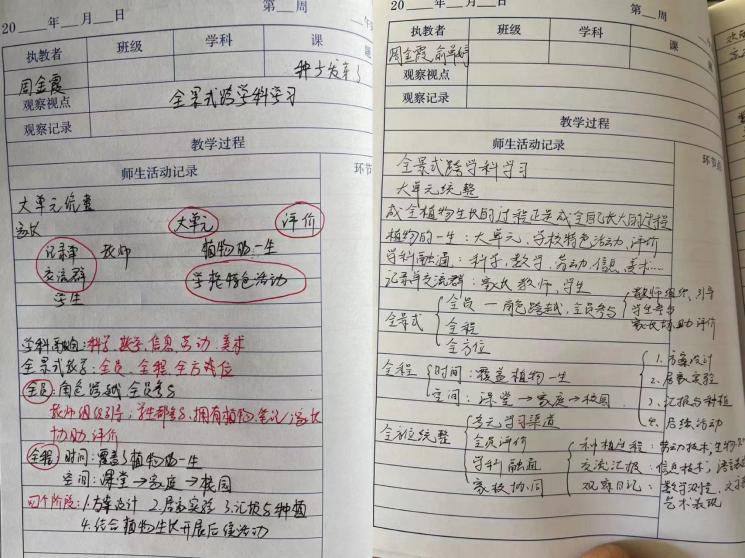 20 年 月 日 第 周
执教者 班级 学科 课 题
周金霞 种子发芽了
观察视点 全景式跨学科学习
观察记录
教学过程
师生活动记录 环节
大单元统整
家长 大单元 评价
记录单 教师 植物的一生
交流群 学校特色活动
学生
学科融合：科学、数学、信息、劳动、美术
全景式教学：全员、全程、全方位
全员：角色跨越 全员参与
教师组织引导，学生都参与，拥有植物、笔记 家长
协助评价
全程 时间：覆盖了植物的一生
空间：课堂→家庭→校园
四个阶段：1.方案设计 2.居家实验 3.汇报与种植
4.结合植物生长开展后续活动
20 年 月 日 第 周
执教者 班级 学科 课
周金霞
观察视点
观察记录
教学过程
师生活动记录 环节
全景式跨学科学习
大单元统整
成全植物生长的过程正是成全自己长大的过程
植物的一生：大单元、学校特色活动、评价
学科融通：科学、数学、劳动、信息、美术…
记录单交流群：家长、教师、学生
全景式 全员—角色跨越，全员参与 教师组织、引导
学生参与
家长协助评价
全程
全方位
全程 时间：覆盖植物一生
空间：课堂→家庭→校园
1.方案设计
2.居家实验
3.汇报与种植
4.后续活动
全方位统整 多元学习渠道
全员评价
学科融通 种植过程：劳动技术，生物
交流汇报：信息技术，语
家校协同 观察日记：数学测量，文
艺术表现